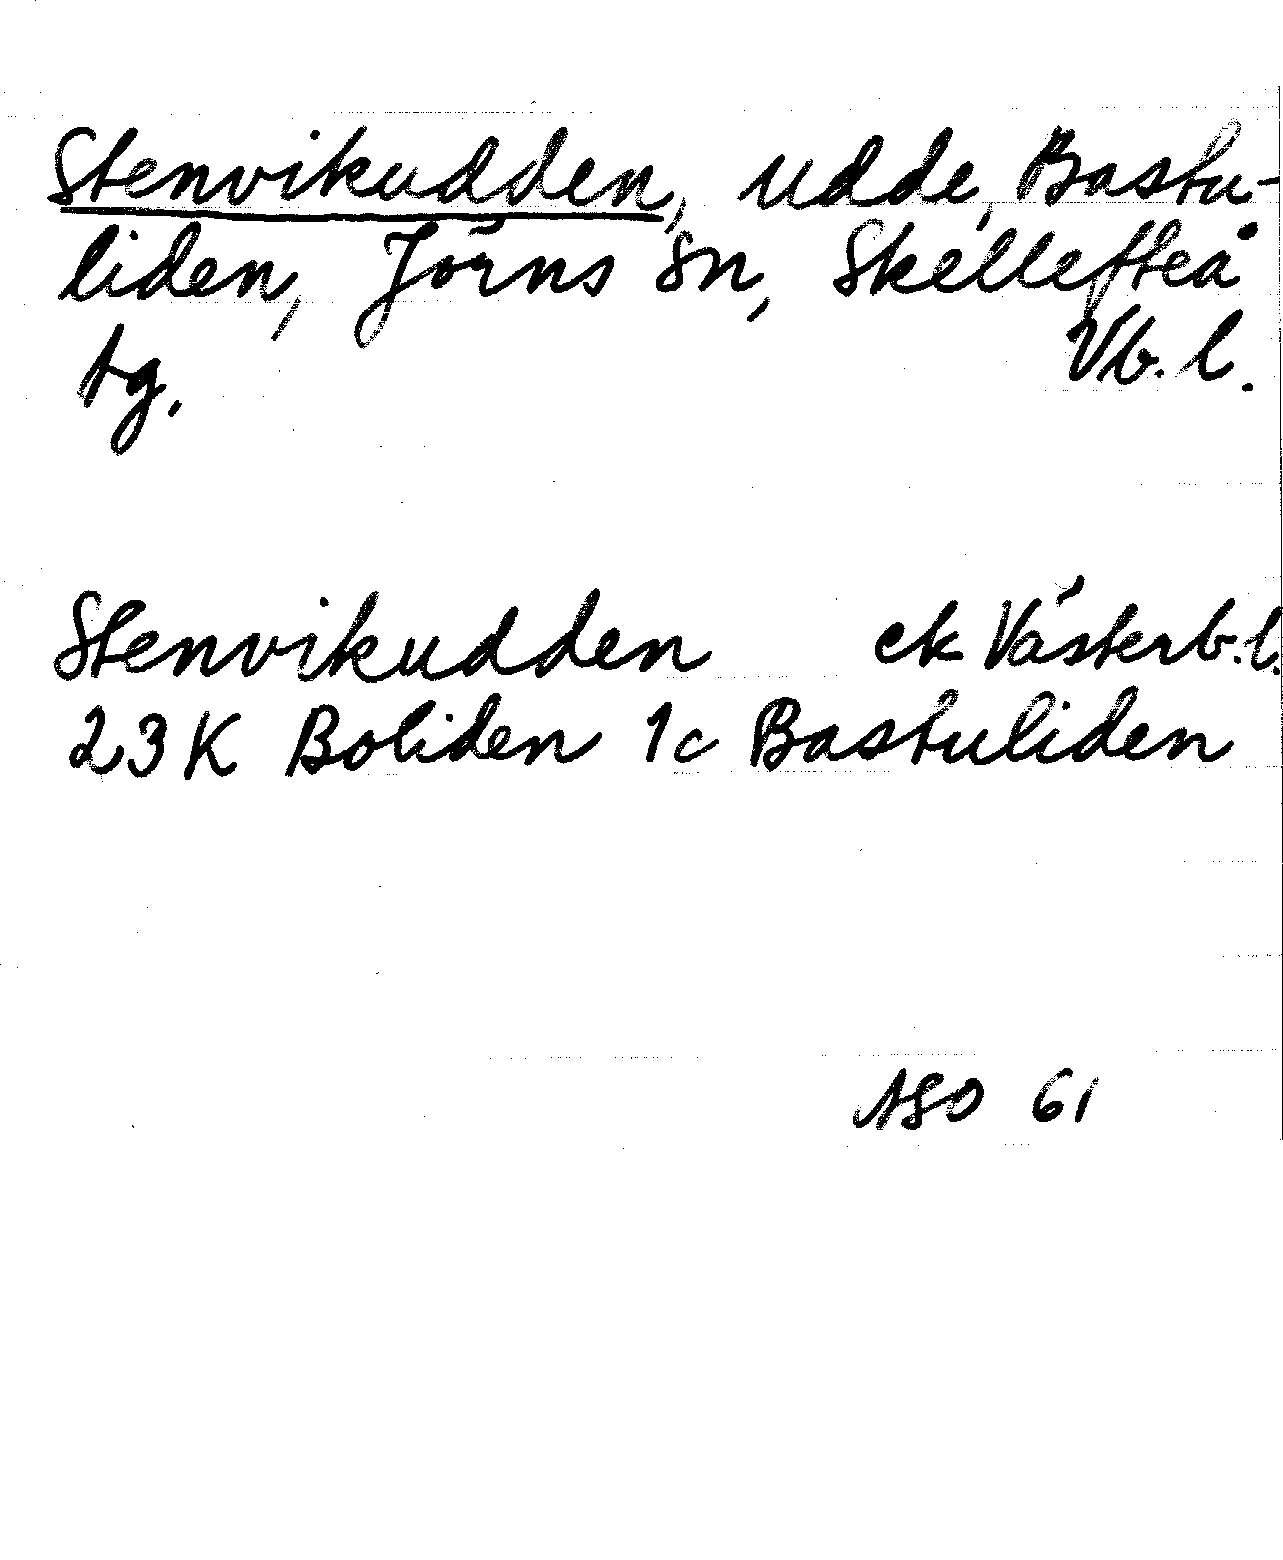 Stenvikudden, udde, Bastu-
liden, Jörns sn, Skellefteå
tg. Vb. l.
Stenvikudden ek Västerb. l.
23K Boliden 1c Bastuliden
ASO 61